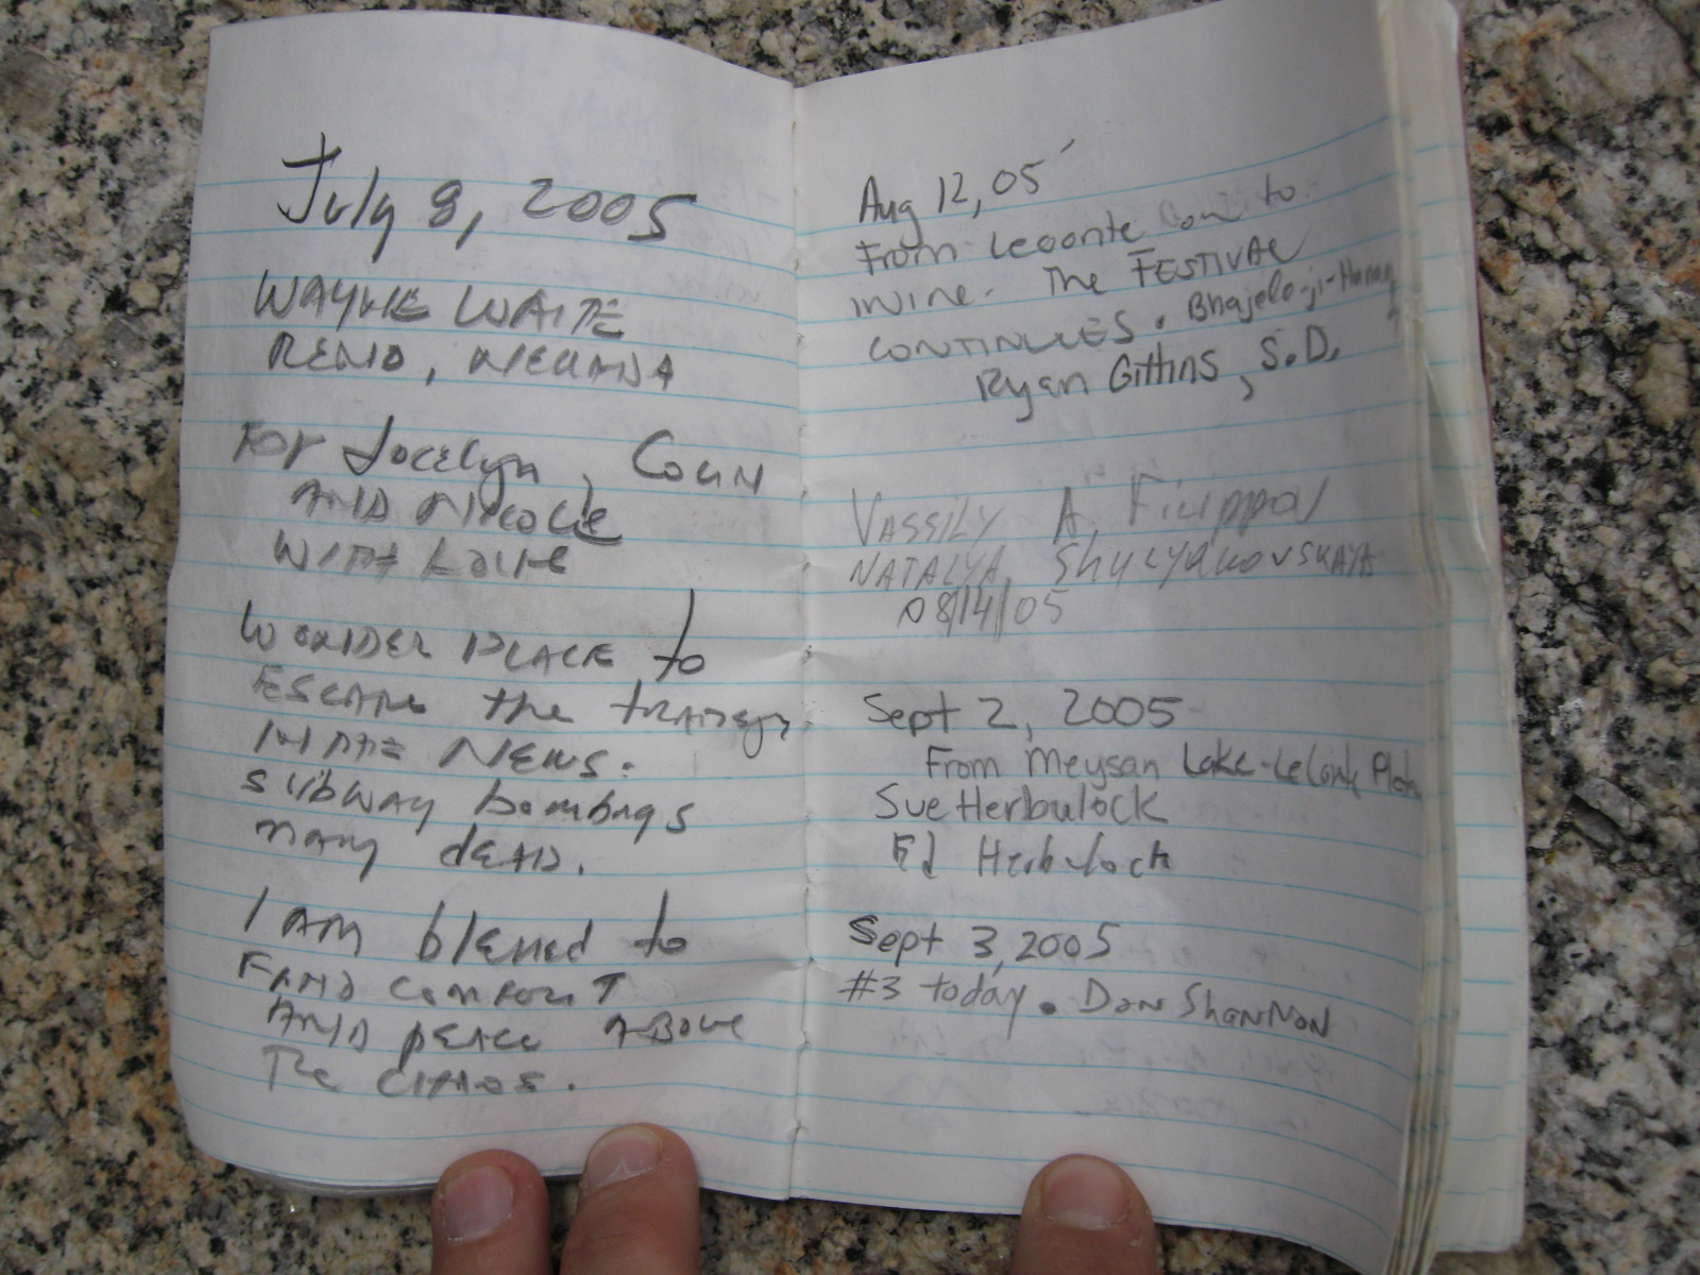 July 8, 2005
WAYNE WAITE
RENO, NEVADA
For Jocelyn, COLIN
AND NICOLE
WITH LOVE
WONDER PLACE to
ESCAPE the tragedy
IN THE NEWS.
SUBWAY bombngs
many dEAD.
I AM blessed to
FIND COMFORT
AND PEACE ABOVE
The CHAOS.
Aug 12, 05'
From Leconte on to
mine. The FESTIVAL
CONTINUES. Bhajelo-ji-Hanuman
Ryan Gittins, S.D.
VASSILY A. Filippov
NATALYA Shulyakovskaya
08/14/05
Sept 2, 2005
From Meysan Lake-LeConte Plat
Sue Herbulock
Ed Herbulock
Sept 3, 2005
#3 today. Dan Shannon